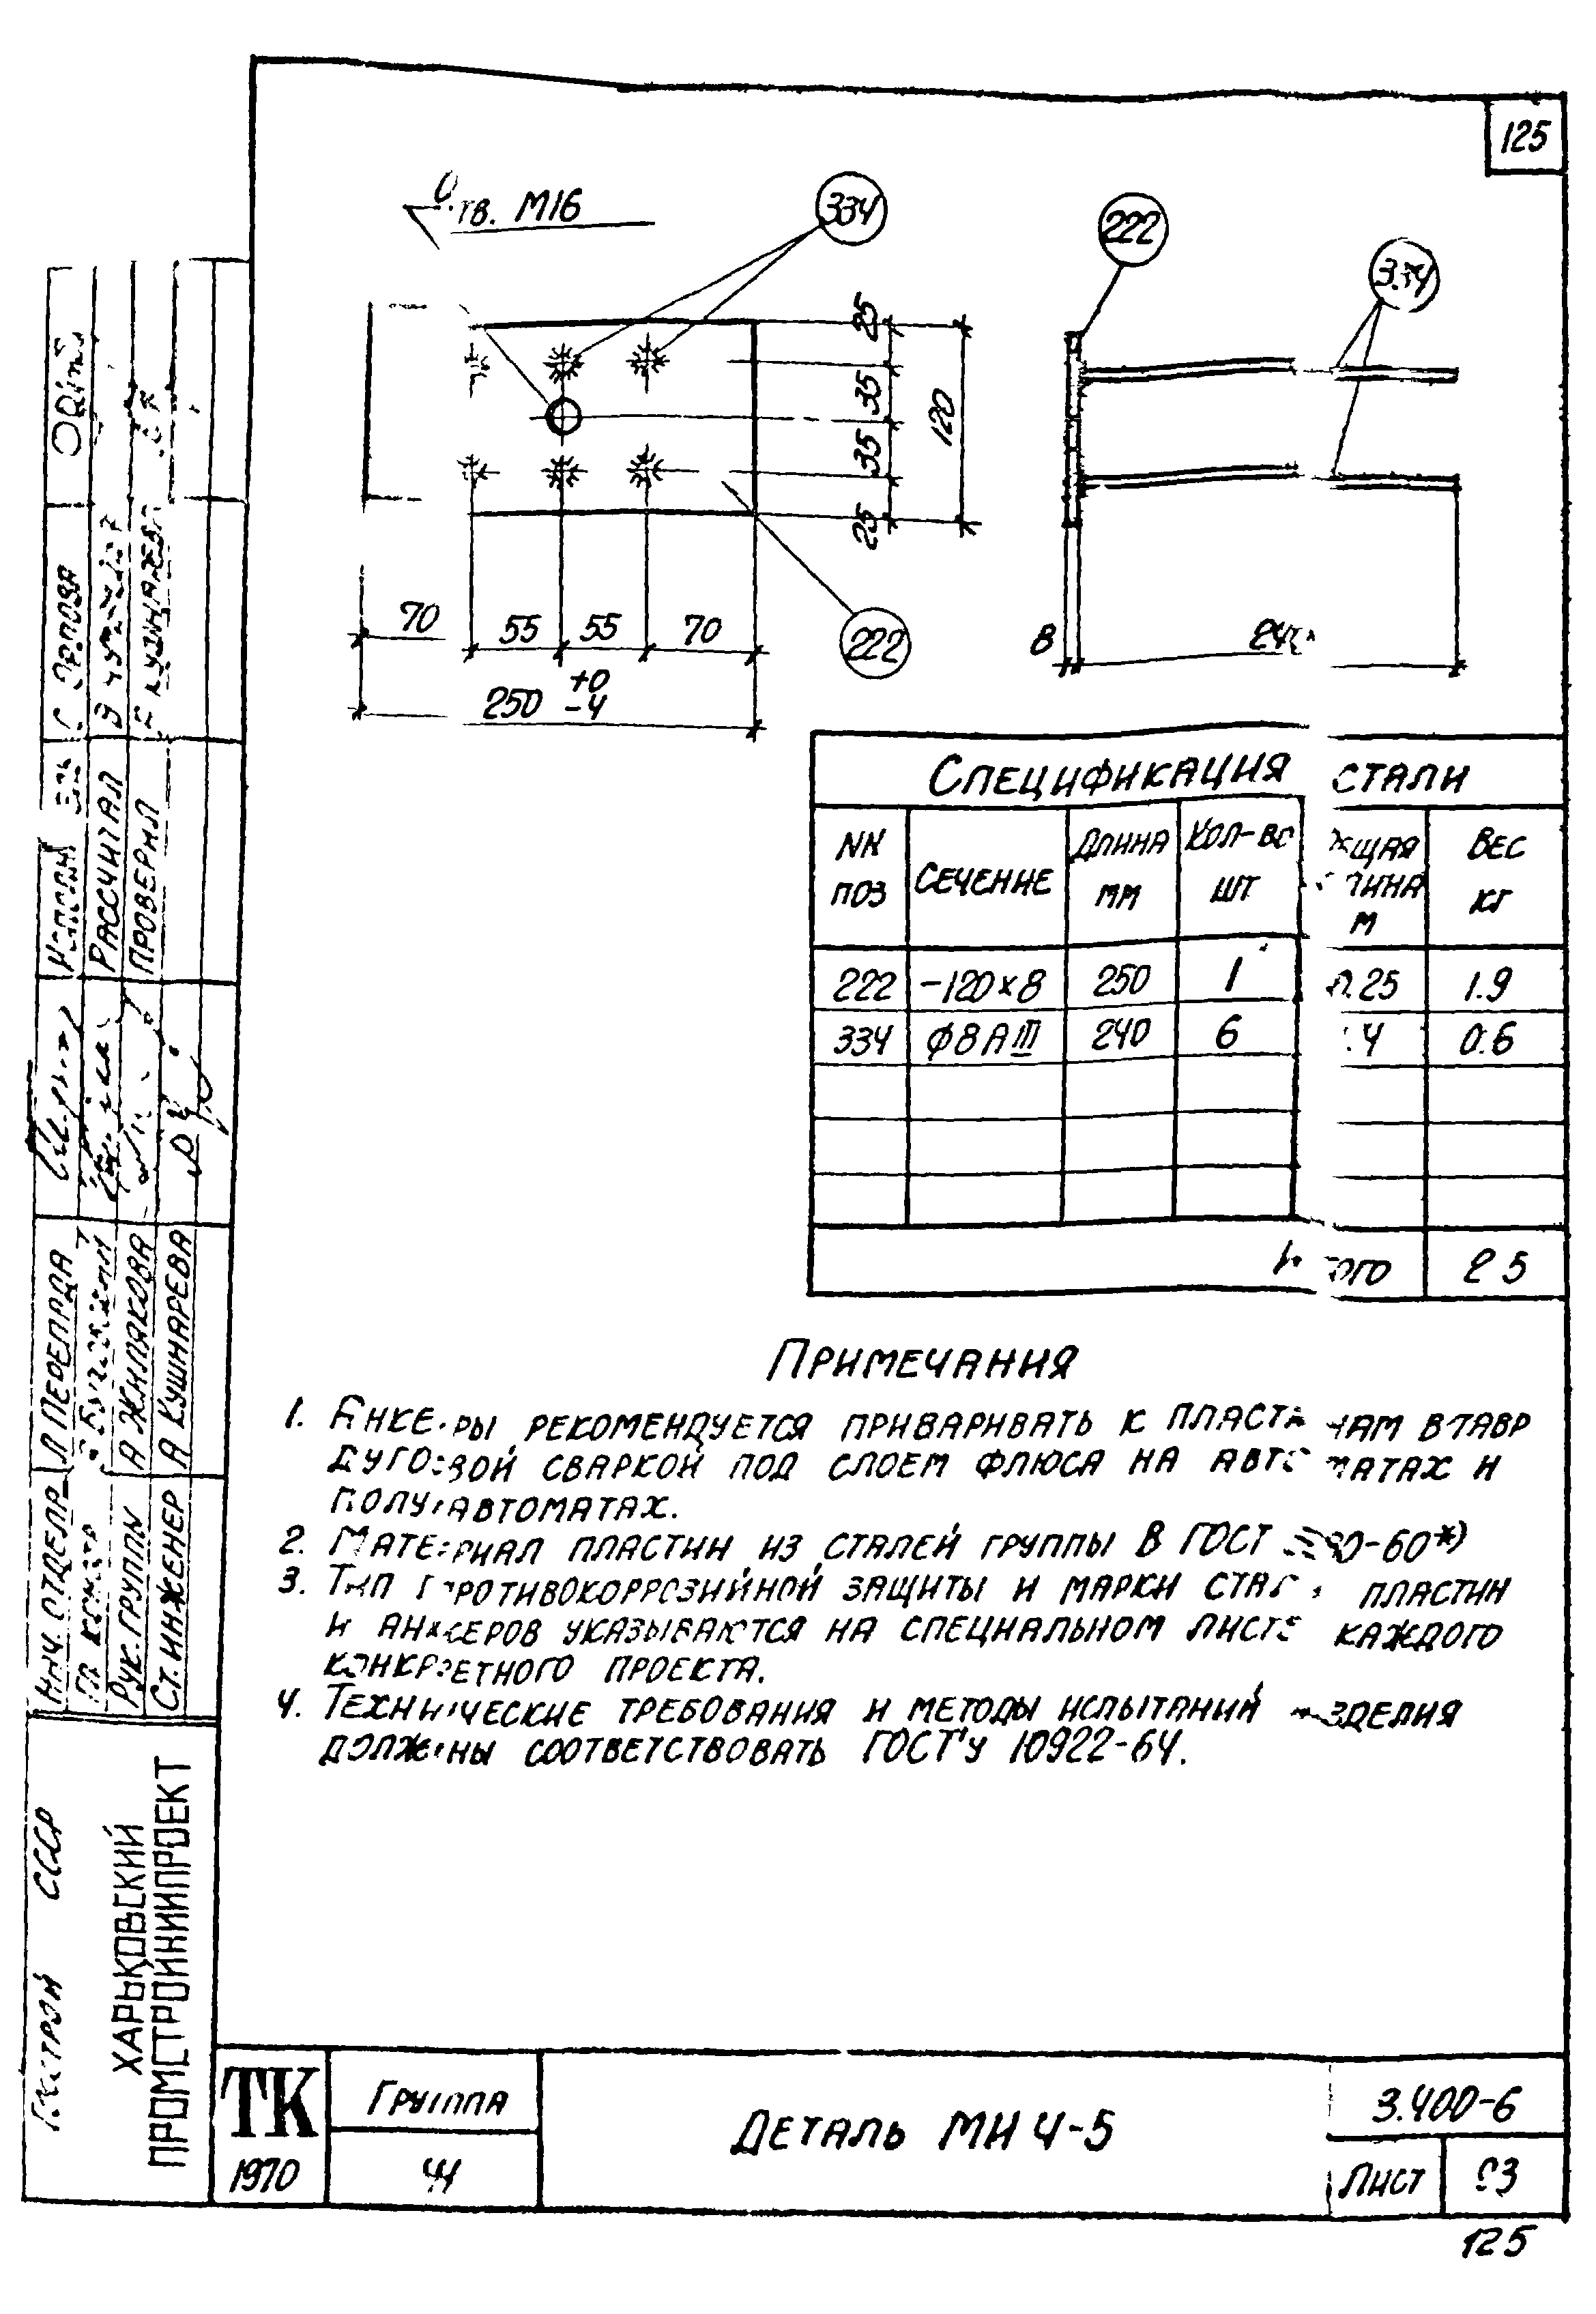 125
Отв. М16
334
222
334
25
35
35
25
120
70
55
55
70
222
250 +0 -4
8
240
Спецификация стали
NN поз
Сечение
Длина мм
Кол-во шт
Общая длина м
Вес кг
222 -120×8 250 1 0.25 1.9
334 Ф8АIII 240 6 1.4 0.6
Итого 2.5
Примечания
1. Анкеры рекомендуется приваривать к пластинам втавр
дуговой сваркой под слоем флюса на автоматах и
полуавтоматах.
2. Материал пластин из сталей группы В ГОСТ 380-60*)
3. Тип противокоррозийной защиты и марки стали пластин
и анкеров указываются на специальном листе каждого
конкретного проекта.
4. Технические требования и методы испытаний изделия
должны соответствовать ГОСТ'у 10922-64.
Нач. отдела Л Перепрда
Рук. группы А Жилякова
Ст. инженер А Кушнарева
Исполн
Рассчитал
Проверил
Госстрой СССР
Харьковский
Промстройниипроект
ТК
1970
Группа
4
Деталь МН 4-5
3.400-6
Лист
93
125